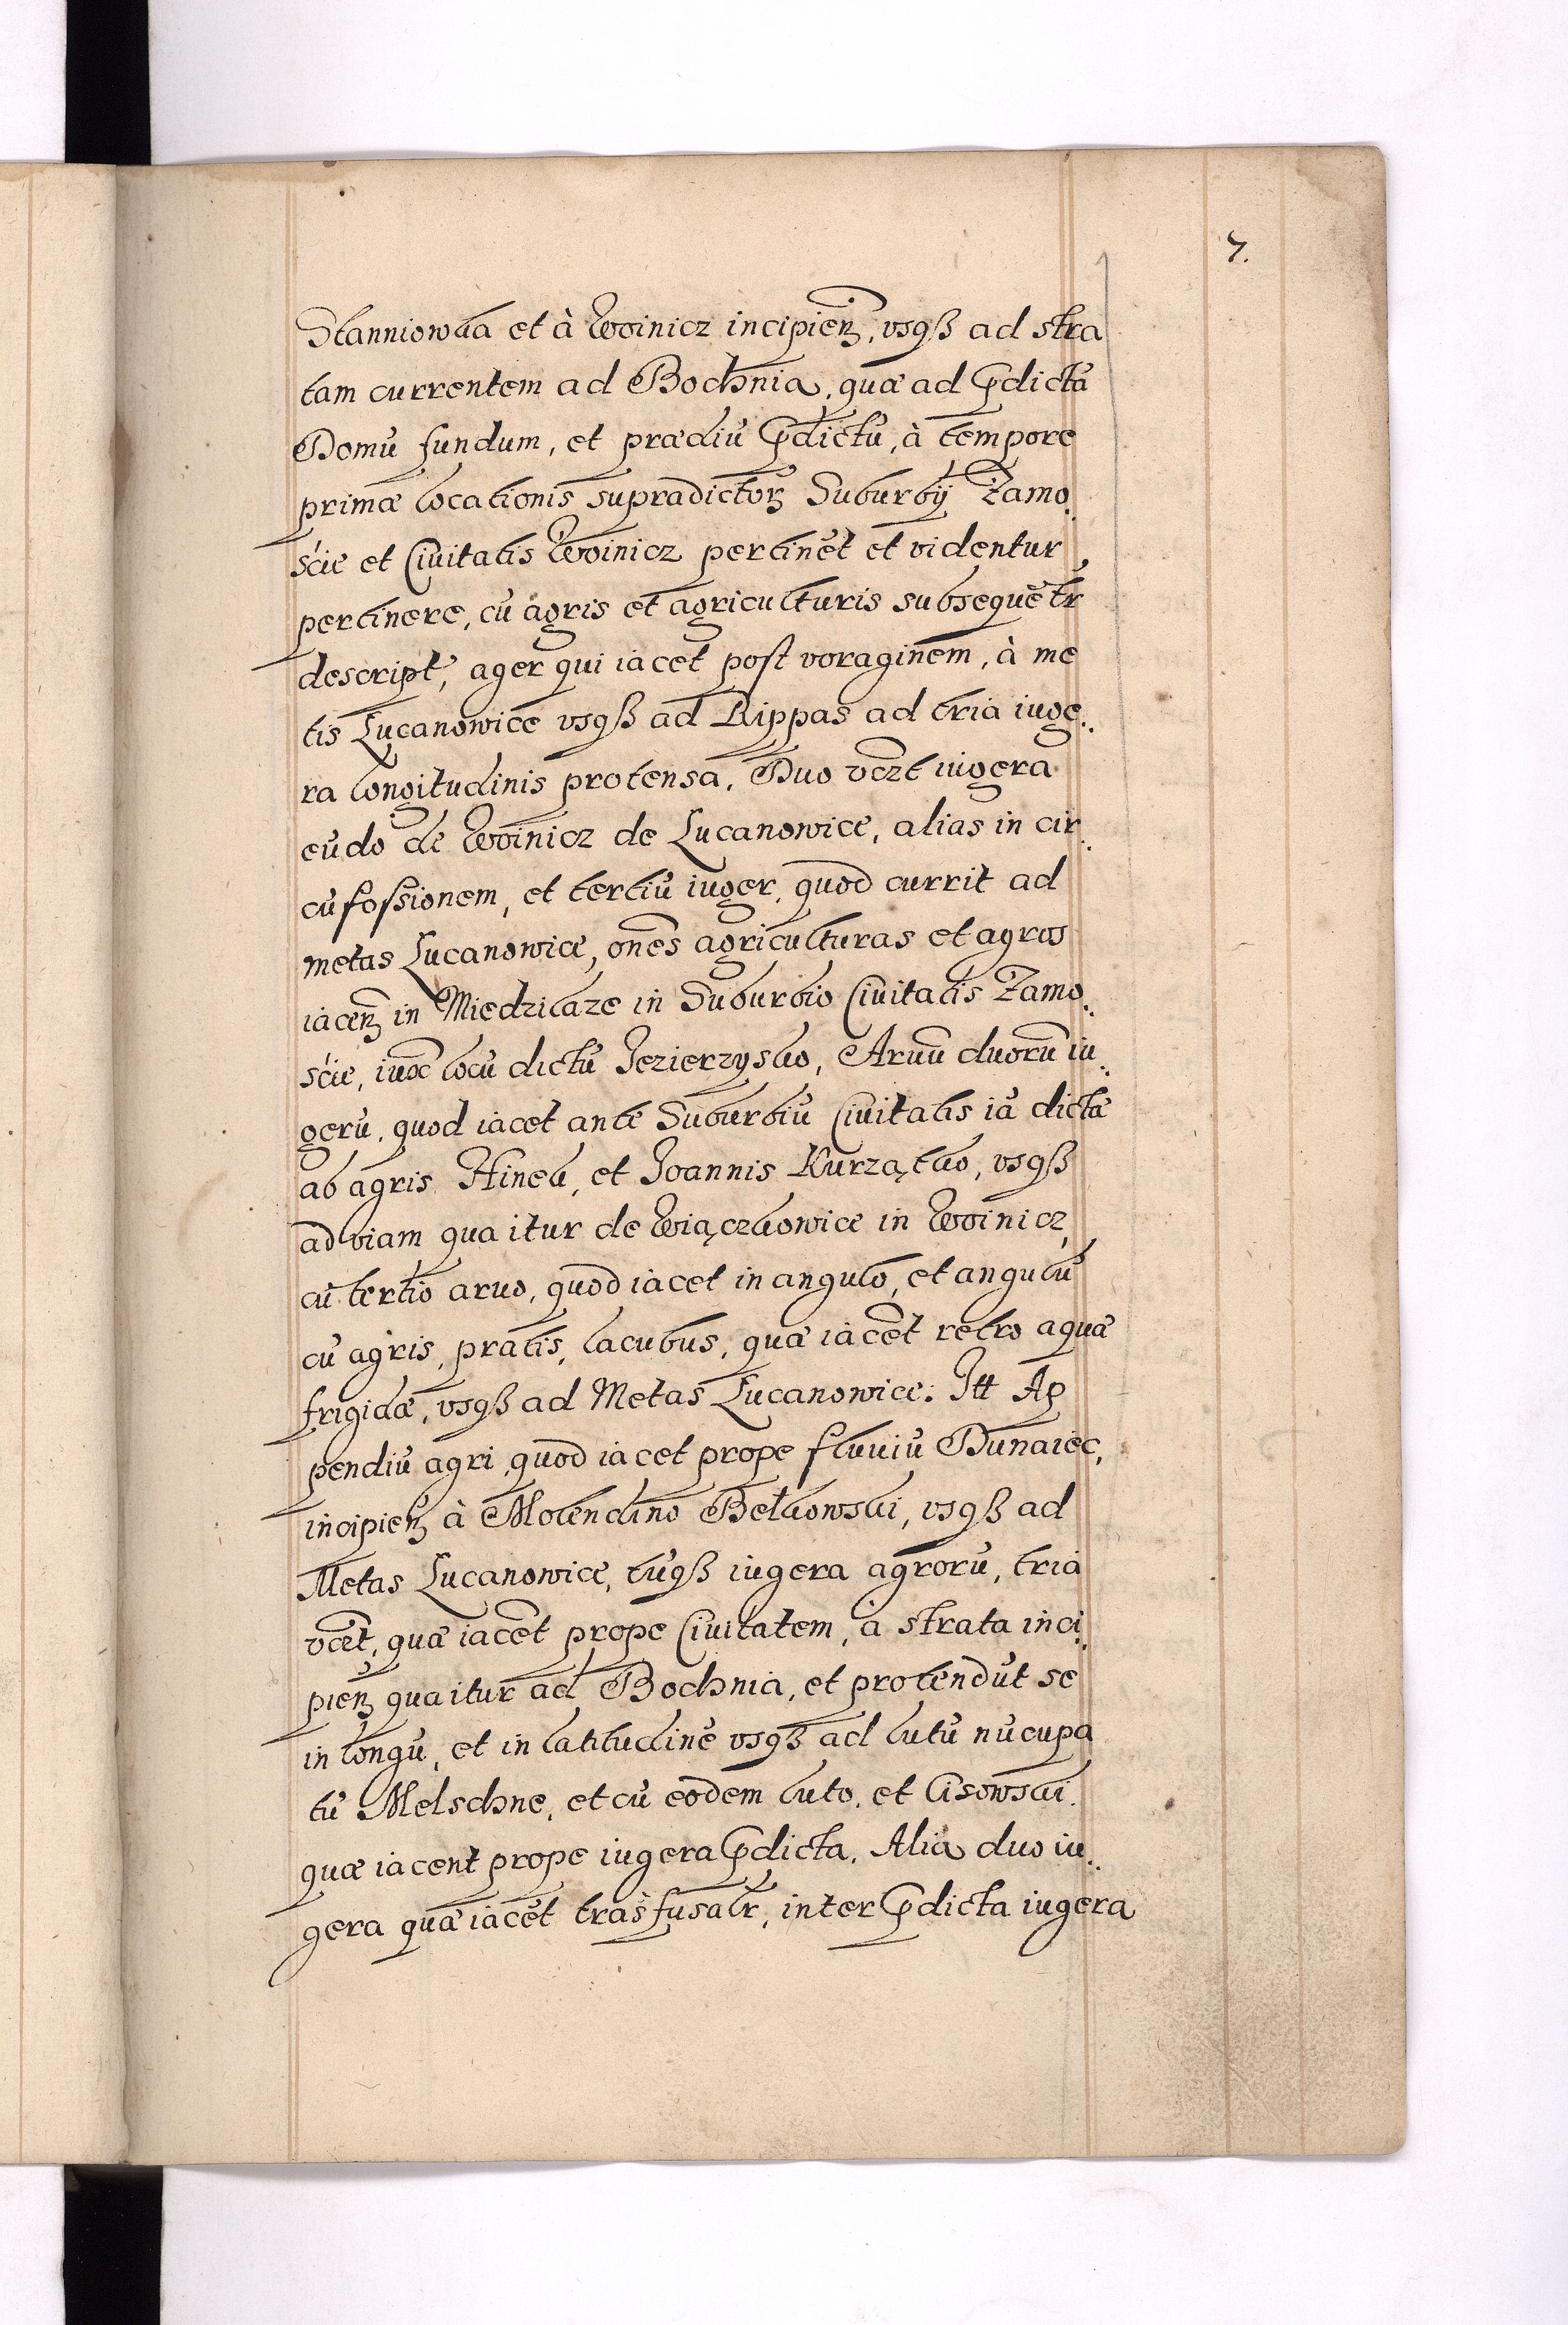 7.
Stanniowka et à Woinicz incipieñ, vsqꝫ ad stra
tam currentem ad Bochnia, quæ ad p̄dictã
Domũ fundum, et prædiũ p̄dictũ, à tempore
primæ locationis supradictoꝝ Suburbij Zamo:
ście et Ciuitatis Woinicz pertinẽt et videntur
pertinere, cũ agris et agriculturis subsequẽtr
descript, ager qui iacet post voraginem, à me
tis Lucanowice vsqꝫ ad Rippas ad tria iuge:
ra longitudinis protensa. Duo vczt iugera
eũdo de Woinicz de Lucanowice, alias in cir:
cũfossionem, et tertiũ iuger, quod currit ad
metas Lucanowice, oñes agriculturas et agros
iaceñ in Miedzilaze in Suburbio Ciuitatis Zamo:
ście, iuxͣ locũ dictũ Jezierzysko, Aruũ duorũ iu:
gerũ, quod iacet ante Suburbiũ Ciuitatis iã dictæ
ab agris Hinek, et Joannis Kurzątko, vsqꝫ
ad viam qua itur de Wiączkowice in Woinicz,
cũ tertio aruo, quod iacet in angulo, et angulũ
cũ agris, pratis, lacubus, quæ iacẽt retro aquæ
frigidæ, vsqꝫ ad Metas Lucanowice. Itt Ap
pendiũ agri, quod iacet prope fluuiũ Dunaiec,
incipieñ à Molendino Belkowski, vsqꝫ ad
Metas Lucanowice, tũqꝫ iugera agrorũ, tria
vcet, quæ iacẽt prope Ciuitatem, à strata inci:
pieñ qua itur ad Bochnia, et protendũt se
in longũ, et in latitudinẽ vsqꝫ ad lutũ nũcupa
tũ Melschne, et cũ eodem luto, et Cisowski,
quæ iacent prope iugera p̄dicta. Alia duo iu:
gera quæ iacẽt trãsfusalr, inter p̄dicta iugera